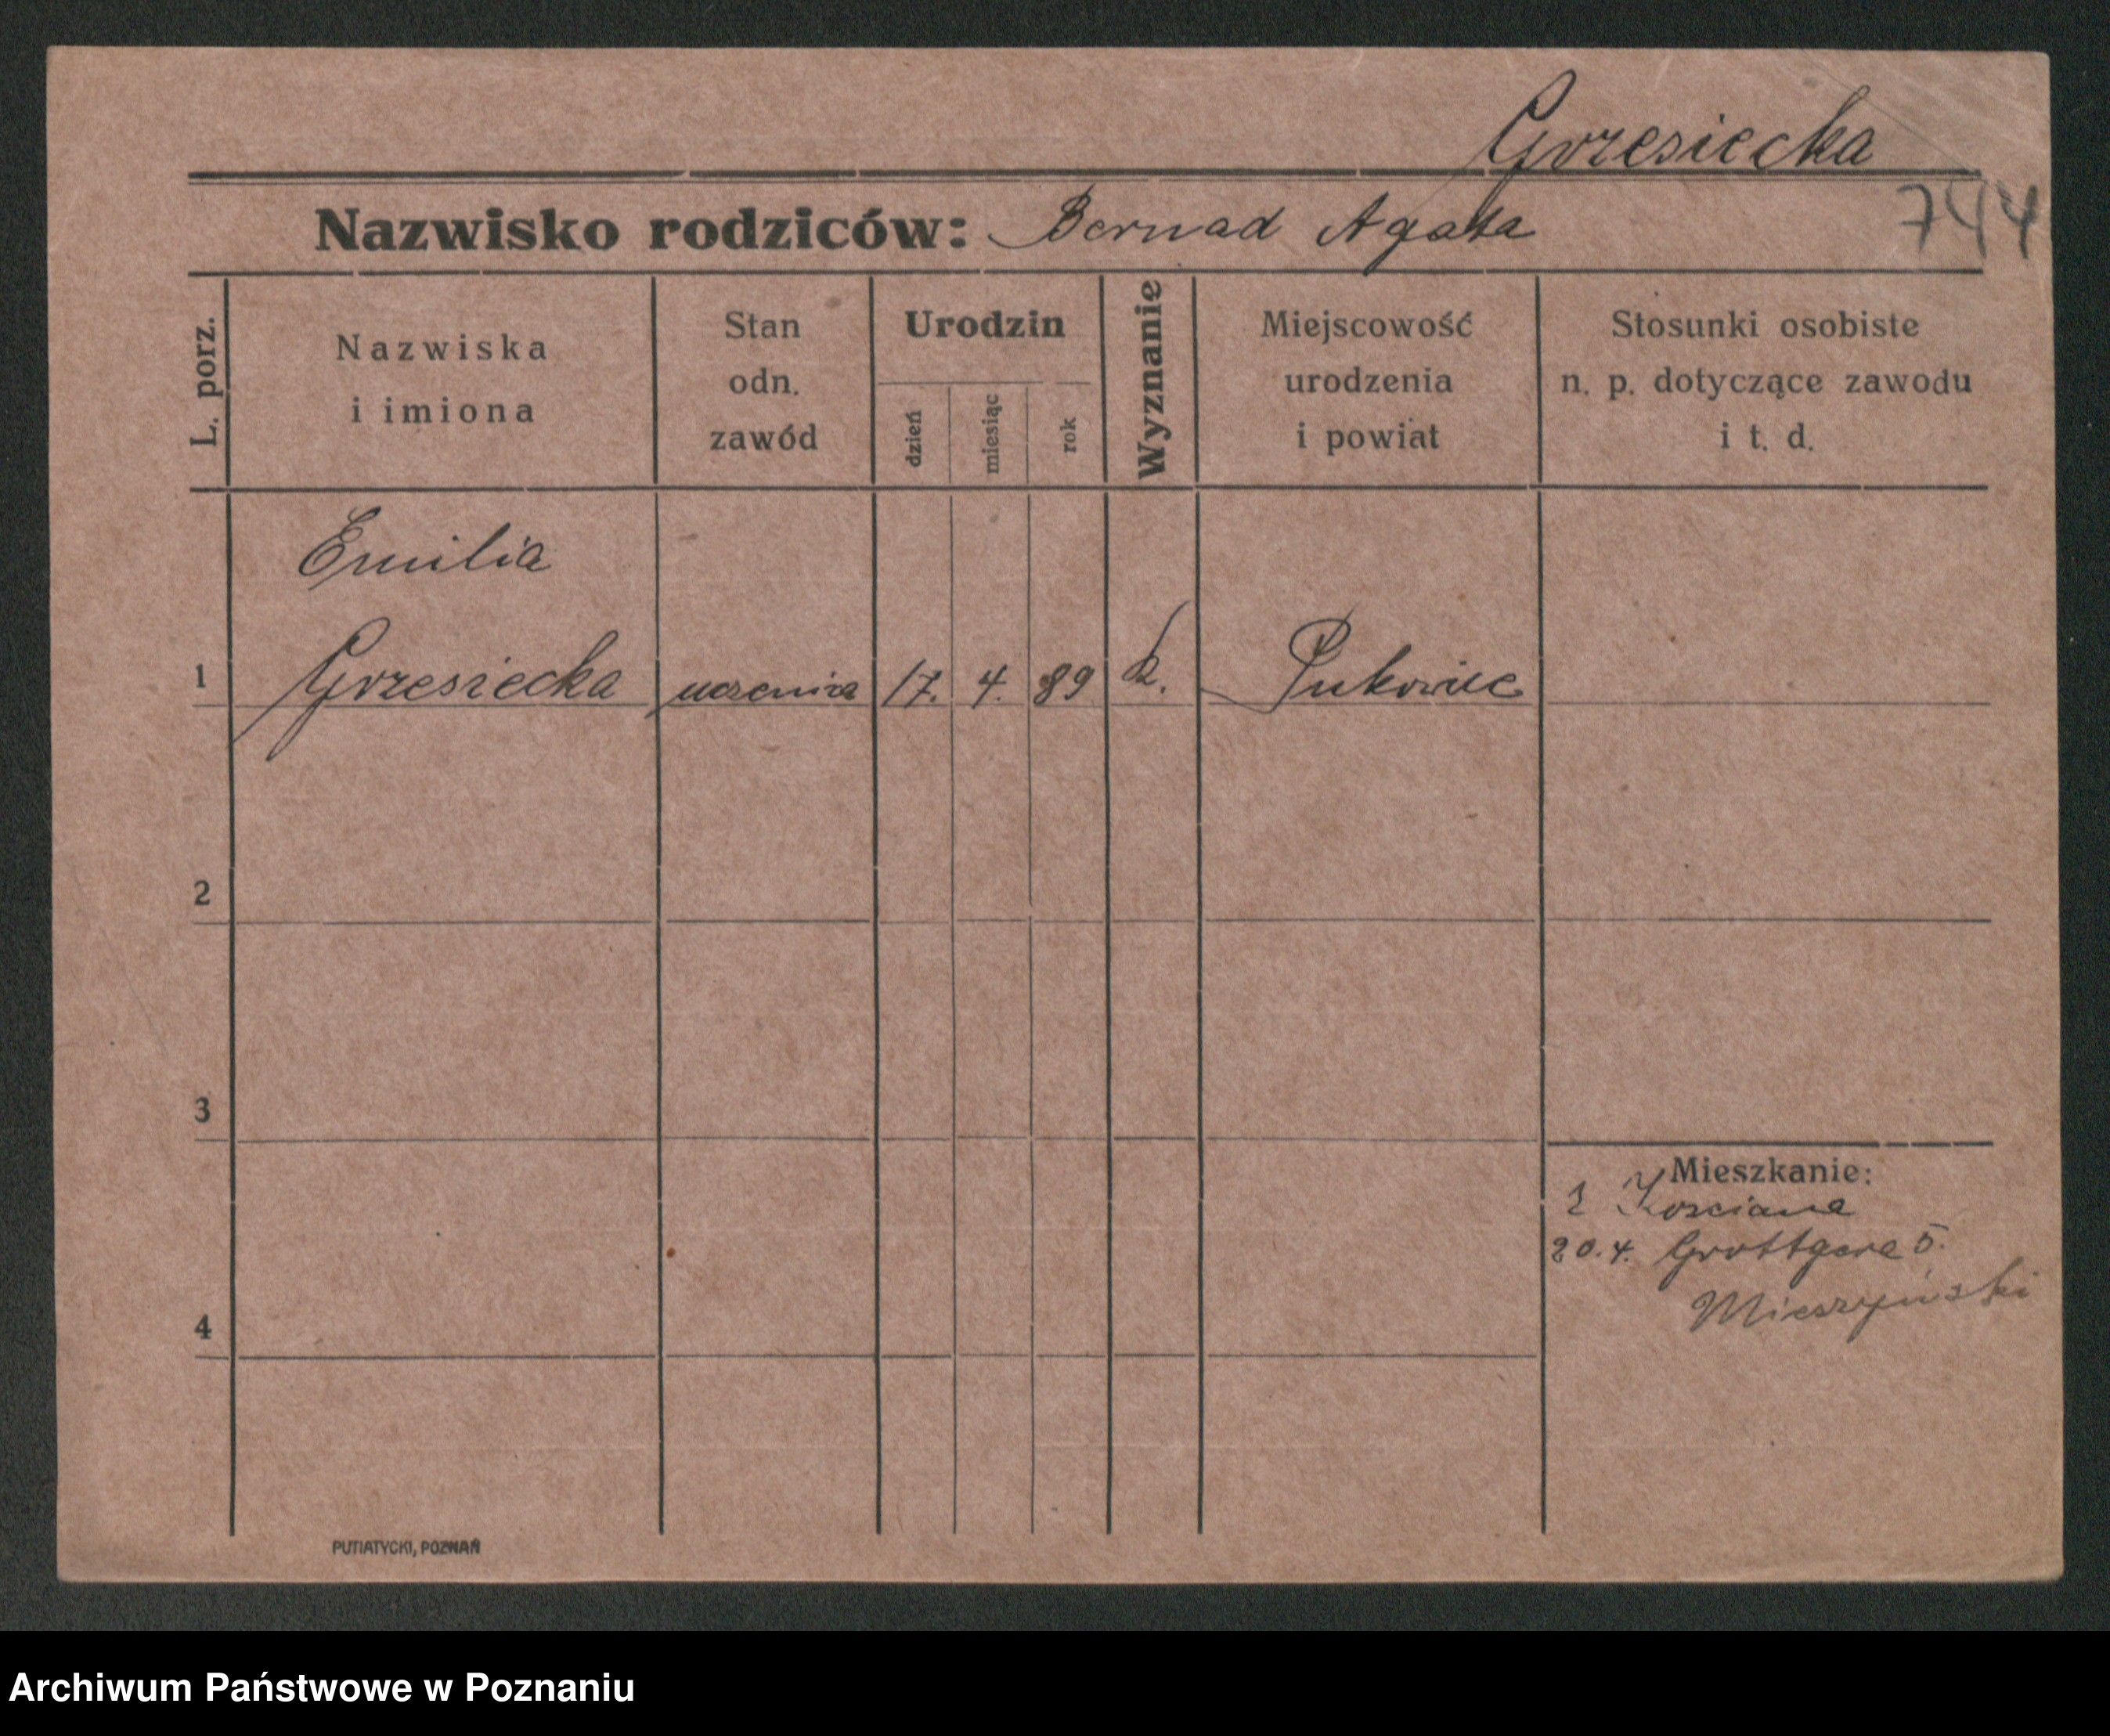 Grzesiecka
744
Nazwisko rodziców: Bernad Agata
L. porz.
Nazwiska
i imiona
Stan
odn.
zawód
Urodzin
dzień
miesiąc
rok
Wyznanie
Miejscowość
urodzenia
i powiat
Stosunki osobiste
n. p. dotyczące zawodu
i t. d.
Emilia
1 Grzesiecka uczenica 17. 4. 89 k. Pukowiec
2
3
4
Mieszkanie:
z Kościana
20.4. Grottgera 5.
Mieszyński
PUTIATYCKI, POZNAŃ
Archiwum Państwowe w Poznaniu